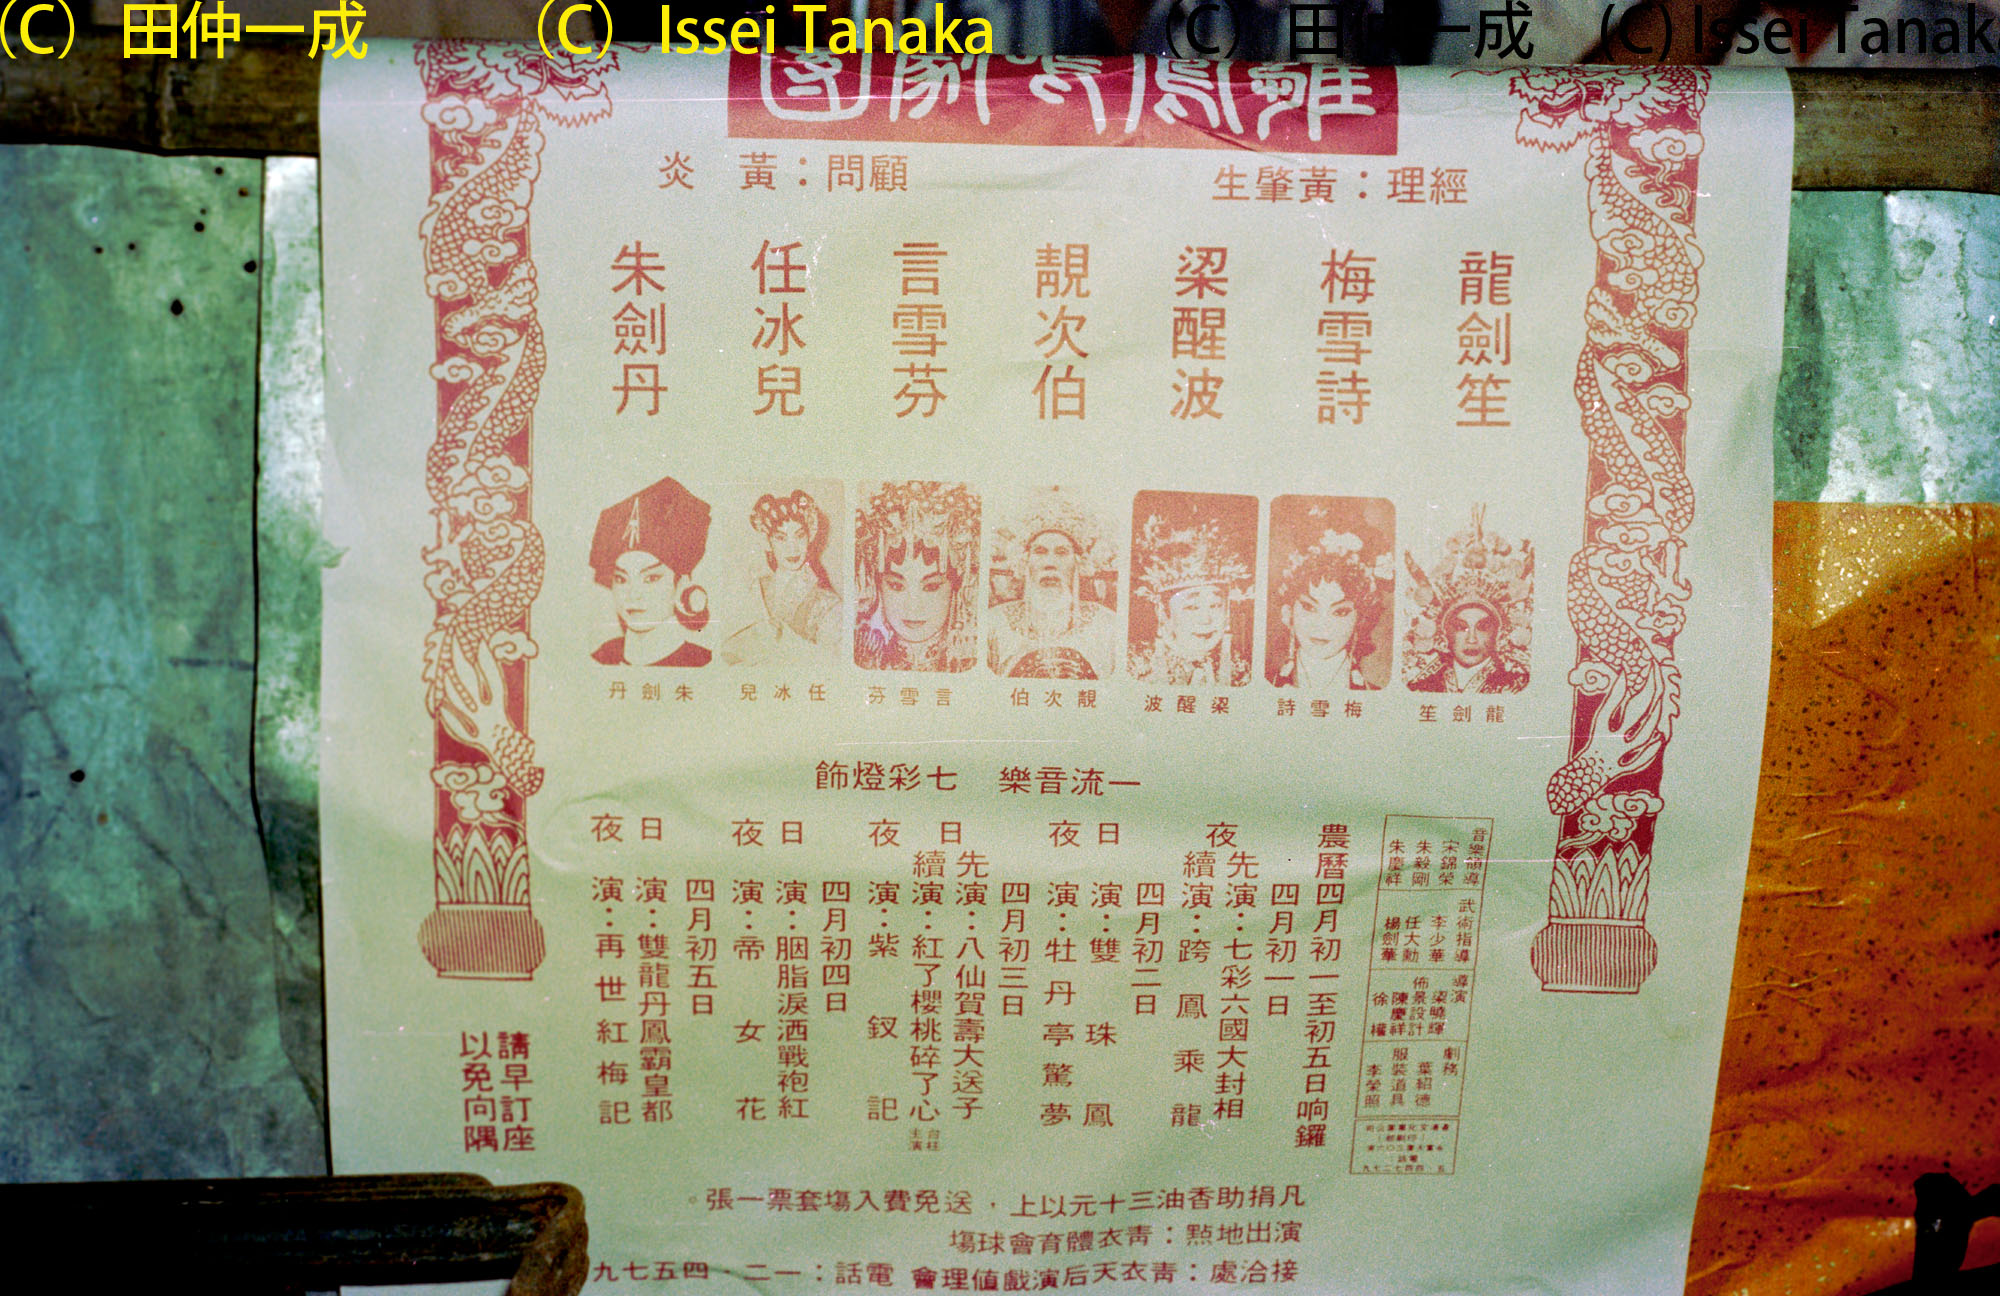 (C) 田仲一成 (C) Issei Tanaka (C) 田仲一成 (C) Issei Tanaka
雛鳳鳴劇團
經理：黃肇生
顧問：黃炎
龍劍笙
梅雪詩
梁醒波
靚次伯
言雪芬
任冰兒
朱劍丹
龍劍笙
梅雪詩
梁醒波
靚次伯
言雪芬
任冰兒
朱劍丹
一流音樂 七彩燈飾
音樂領導
宋錦榮
朱毅剛
朱慶祥
武術指導
李少華
任大勳
楊劍華
導演
梁曉暉
佈景設計
陳慶祥
徐權
劇務
葉紹德
服裝道具
李榮照
農曆四月初一至初五日响鑼
四月初一日
夜
先演：七彩六國大封相
續演：跨鳳乘龍
四月初二日
日演：雙珠鳳
夜演：牡丹亭驚夢
四月初三日
日
先演：八仙賀壽大送子
續演：紅了櫻桃碎了心
台柱主演
夜演：紫釵記
四月初四日
日演：胭脂淚洒戰袍紅
夜演：帝女花
四月初五日
日演：雙龍丹鳳霸皇都
夜演：再世紅梅記
請早訂座
以免向隅
凡捐助香油三十元以上，送免費入場套票一張。
演出地點：青衣體育會球場
接洽處：青衣天后演戲值理會 電話：一二 四五七九